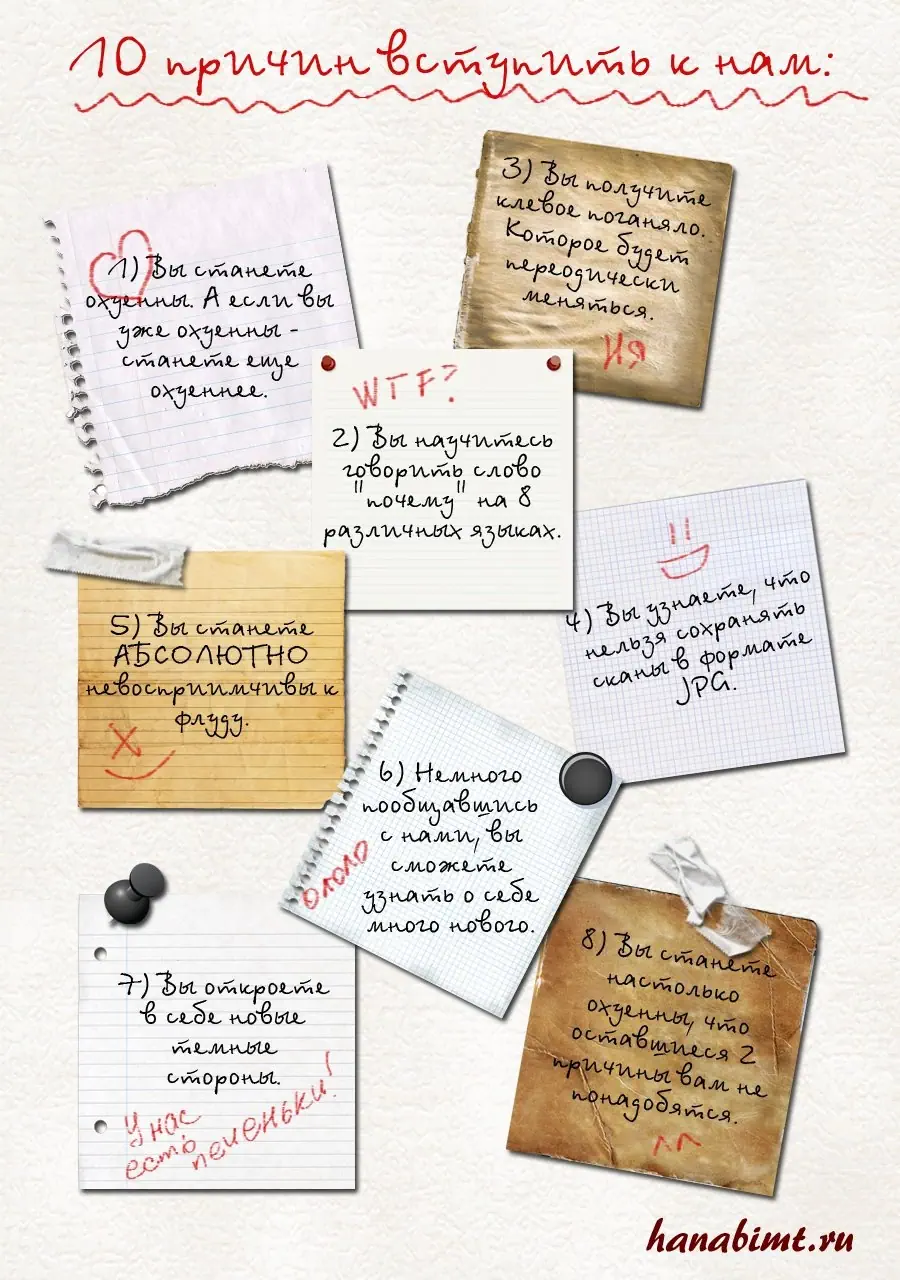 10 причин вступить к нам:
1) Вы станете
охуенны. А если вы
уже охуенны -
станете еще
охуеннее.
WTF?
2) Вы научитесь
говорить слово
"почему" на 8
различных языках.
3) Вы получите
клевое поганяло.
Которое будет
переодически
меняться.
Ия
4) Вы узнаете, что
нельзя сохранять
сканы в формате
JPG.
5) Вы станете
АБСОЛЮТНО
невосприимчивы к
флуду.
6) Немного
пообщавшись
с нами, вы
сможете
узнать о себе
много нового.
ололо
7) Вы откроете
в себе новые
темные
стороны.
У нас
есть печеньки!
8) Вы станете
настолько
охуенны, что
оставшиеся 2
причины вам не
понадобятся.
^^
hanabimt.ru